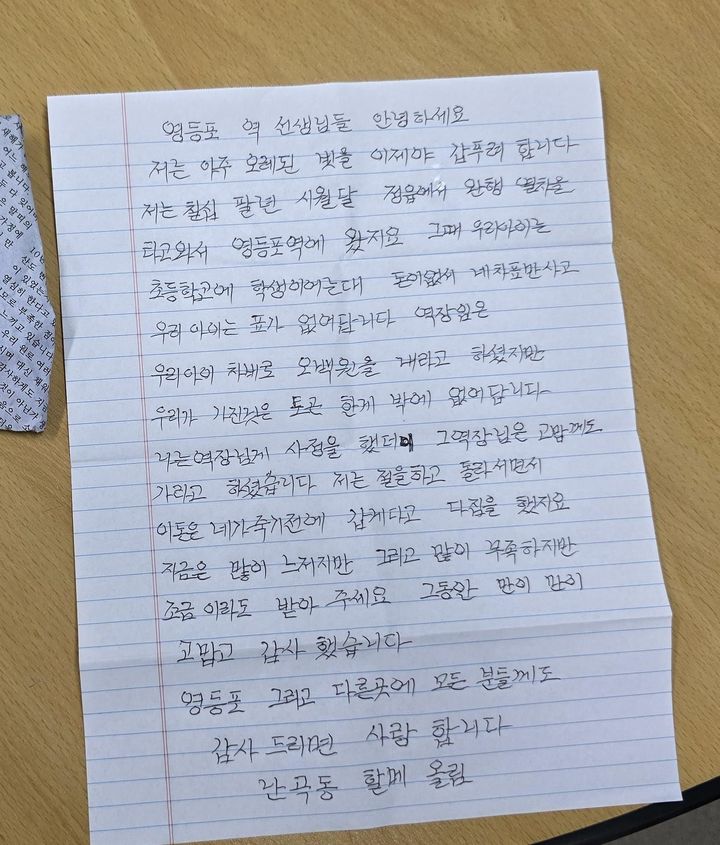 영등포 역 선생님들 안녕하세요
저는 아주 오레된 빛을 이제야 갚푸려 합니다
저는 칠십 팔년 시월달 정읍에서 완행 열차을
타고와서 영등포역에 왔지요 그때 우리아이는
초등학고에 학생이여는대 돈이없서 네차표만사고
우리 아이는 표가 없어답니다 역장임은
우리아이 차비로 오백원을 내라고 하셨지만
우리가 가진것은 토큰 한게 밖에 없어답니다
나는역장님게 사정을 했더니 그역장님은 고맙게도
가라고 하셨습니다 저는 절을하고 돌라서면서
이돈은 네가죽기전에 갑게다고 다집을 했지요
지금은 많이 느저지만 그리고 많이 부족하지만
조금이라도 받아 주세요 그동안 만이 만이
고맙고 감사 했습니다
영등포 그리고 다른곳에 모든 분들께도
감사 드리면 사랑 합니다
난곡동 할메 올림
새해가
어느 해
고 봅니다
두 터
있어
만
10년
산도 변
이 있었는
열심히 한다고
부족한 점
느끼고 있습니다
우리 원로 여러